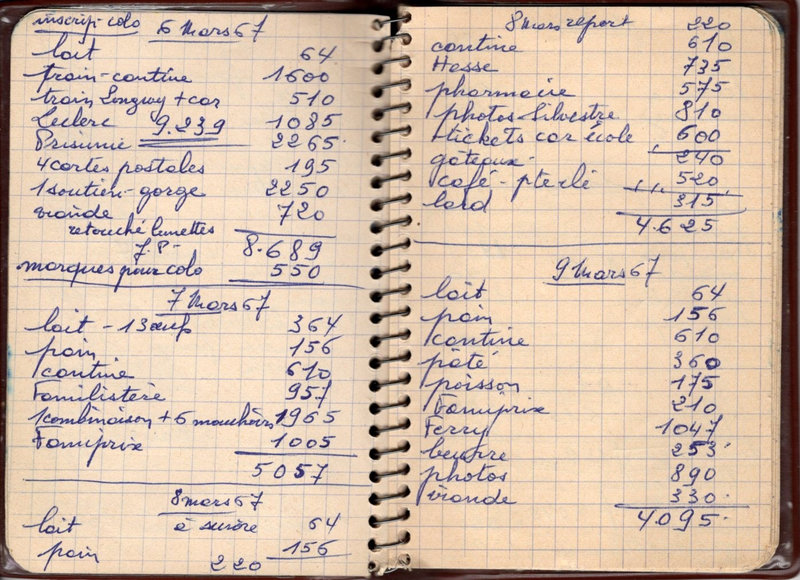 inscrip-colo 6 Mars 67
lait 64
train-cantine 1600
train Longwy + car 510
Leclerc 9.239 1085
Prisunic 2265
4 cartes postales 195
1 soutien-gorge 2250
viande 720
retouché lunettes
J.P. 8.689
marques pour colo 550
7 Mars 67
lait - 13 œufs 364
pain 156
cantine 610
Familistère 957
1 combinaison + 6 mouchoirs 1965
Famiprix 1005
5057
8 mars 67
lait à suivre 64
pain 156
220
8 Mars report 220
cantine 610
Hesse 735
pharmacie 575
photos Silvestre 810
tickets car école 600
gâteaux 240
café - pte clé 520
lard 315
4.625
9 Mars 67
lait 64
pain 156
cantine 610
pâté 360
poisson 175
Famiprix 210
Ferry 1047
beurre 253
photos 890
viande 330
4.095